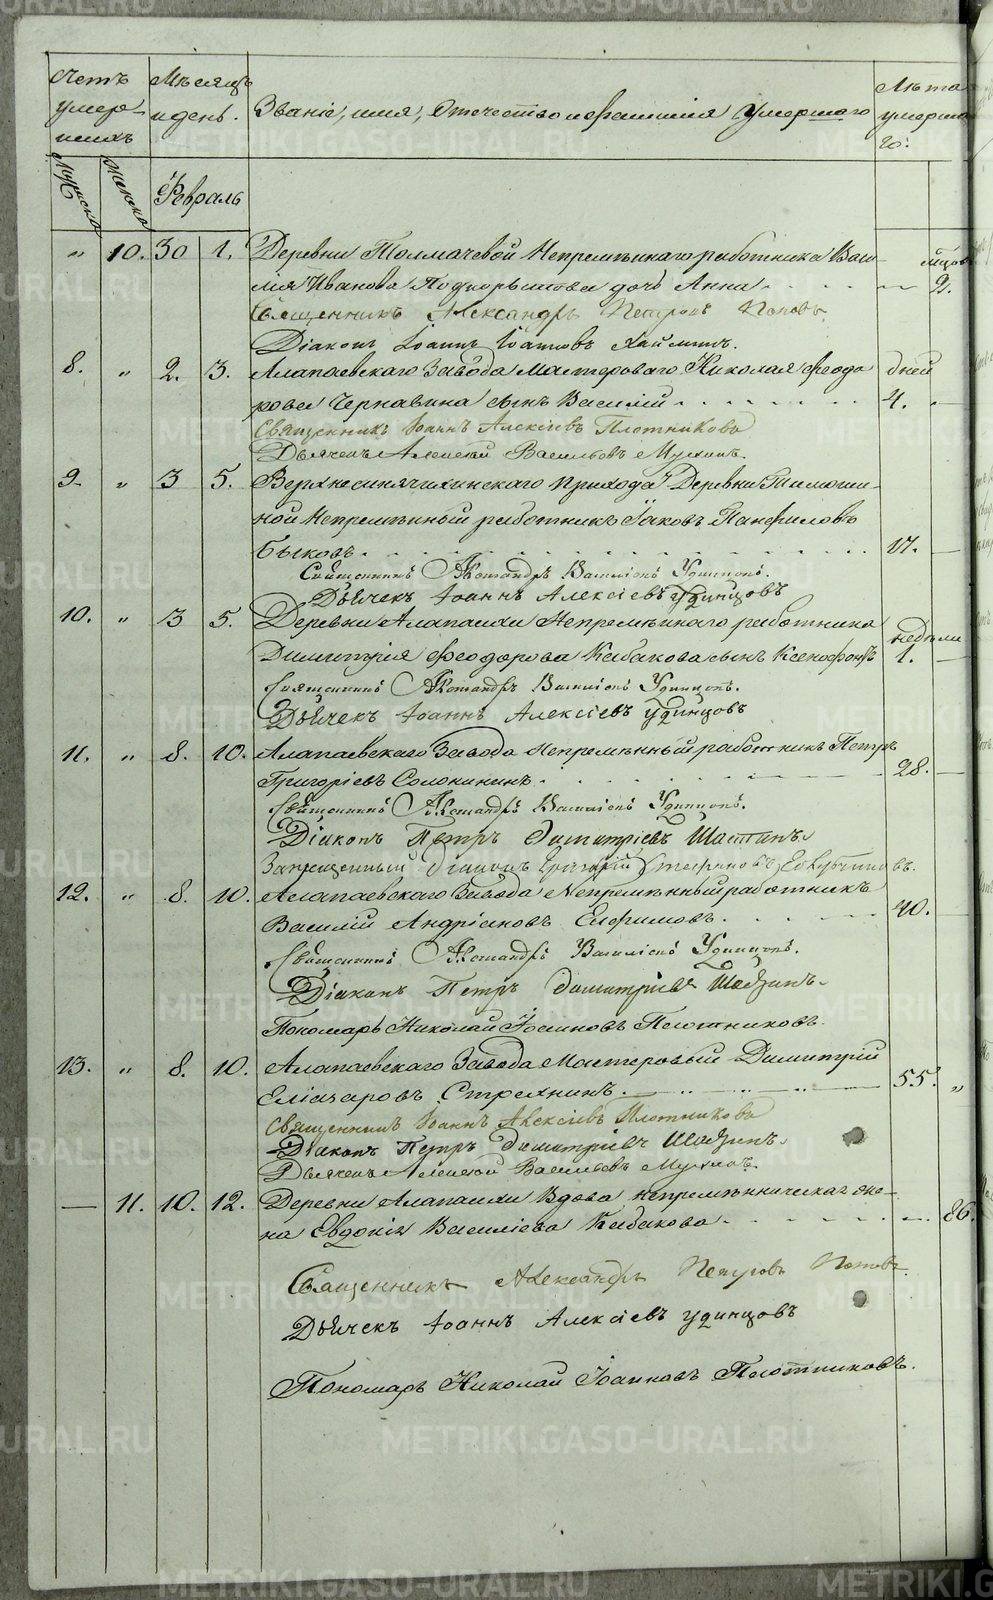 Счетъ умер-шихъ
Мѣсяцъ и день.
Званіе, имя, Отечество и фамилія Умершаго
Лѣта умерша го:
Мужеска
Женска
Февраль
„ 10. 30 1. Деревни Толмачевой Непремѣннаго работника Васи-
лія Иванова Подкорытова дочь Анна
мѣсяц 2.
Священникъ Александръ Петровъ Поповъ
Діаконъ Іоаннъ Іоанновъ
8. „ 2. 3. Алапаевскаго Завода Мастероваго Николая Феодо
рова Чернавина сынъ Василій
дней 4.
Священникъ Іоаннъ Алексіевъ Плотниковъ
Дьячекъ Алексѣй Васильевъ Мухинъ
9. „ 3 5. Верхнесинячихинскаго прихода Деревни Тимоши-
ной Непремѣнный работникъ Іаковъ Панфиловъ
Быковъ
17.
Священникъ Александръ Василіевъ Удинцовъ.
Дьячекъ Іоаннъ Алексіевъ Удинцовъ
10. „ 3 5. Деревни Алапаихи Непремѣннаго работника
Димитрія Феодорова Кабакова сынъ Ксенофонтъ
недѣли 1.
Священникъ Александръ Василіевъ Удинцовъ.
Дьячекъ Іоаннъ Алексіевъ Удинцовъ
11. „ 8. 10. Алапаевскаго Завода Непремѣнный работникъ Петръ
Григоріевъ Солонининъ
28.
Священникъ Александръ Василіевъ Удинцовъ.
Діаконъ Петръ Димитріевъ
Запрещенный Діаконъ Григорій Стефановъ
12. „ 8. 10. Алапаевскаго Завода Непремѣнный работникъ
Василій Андріановъ Ефимовъ
40.
Священникъ Александръ Василіевъ Удинцовъ.
Діаконъ Петръ Димитріевъ
Пономарь Николай Іоанновъ Плотниковъ
13. „ 8. 10. Алапаевскаго Завода Мастеровый Димитрій
Еліазаровъ Стряхнинъ
55. „
Священникъ Іоаннъ Алексіевъ Плотниковъ
Діаконъ Петръ Димитріевъ
Дьячекъ Алексѣй Васильевъ Мухинъ
— 11. 10. 12. Деревни Алапаихи Вдова непремѣнническая же-
на Евдокія Василіева Кабакова
86.
Священникъ Александръ Петровъ Поповъ
Дьячекъ Іоаннъ Алексіевъ Удинцовъ
Пономарь Николай Іоанновъ Плотниковъ.
METRIKI.GASO-URAL.RU